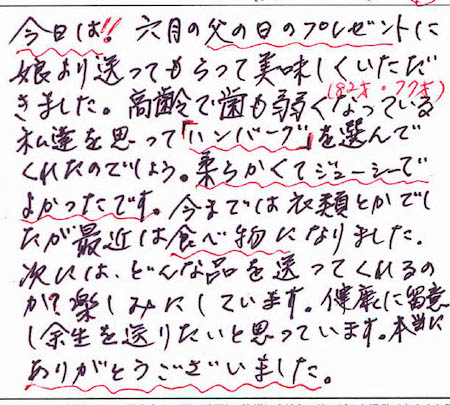 今日は!! 六月の父の日のプレゼントに
娘より送ってもらって美味しくいただ
きました。高齢で歯も弱くなっている
(82才・77才)
私達を思って「ハンバーグ」を選んで
くれたのでしょう。柔らかくてジューシーで
よかったです。今までは衣類とかでし
たが最近は食べ物になりました.
次には、どんな品を送ってくれるの
か?楽しみにしています。健康に留意
し余生を送りたいと思っています。本当に
ありがとうございました。